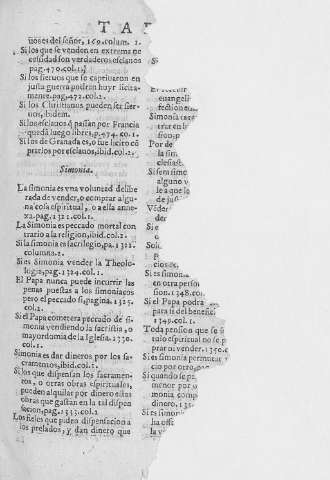 TAB
ñores del señor, 169.colum. 1.
Si los que se venden en extrema ne
cessidad son verdaderos esclauos
pag.470.col.1.
Si los sieruos que se captiuaron en
justa guerra podran huyr licita-
mente.pag.472.col.2.
Si los Christianos pueden ser sier-
uos, ibidem.
Si los esclauos q̃ passan por Francia
queda luego libres, p.474.co.1.
Si los de Granada es, o fue licito cõ
prarlos por esclauos, ibid.col.2.
Simonia.
La simonia es vna voluntad delibe
rada de vender, o comprar algu-
na cosa espiritual, o a ella anne-
xa.pag.1321.col.1.
La Simonia es peccado mortal con
trario a la religion, ibid.col.2.
Si la simonia es sacrilegio, pa.1322.
columna.2.
Si es Simonia vender la Theolo-
logia, pag.1324.col.1.
El Papa nunca puede incurrir las
penas puestas a los simoniacos
pero el peccado si, pagina.1325.
col.2.
Si el Papa cometera peccado de si-
monia vendiendo la sacristia, o
mayordomia de la Iglesia.1330.
col.1.
Simonia es dar dineros por los sa-
cramentos, ibid.col.1.
Si los que dispensan los sacramen-
tos, o otras obras espirituales,
pueden alquilar por dinero estas
obras que gastan en la tal dispen
sacion, pag.1333.col.2
Los fieles que piden dispensacion a
los prelados, y dan dinero que
Si
Er
euangeli
fectione
Simonia
trar en
son, p
Por de
la sim
clesiast
Si seria sim
alguno v
le a que le
de jus
Vẽder
der
Si
o
Soli
p
cio es
Si es simonia
en otra perso
son.1348.co
Si el Papa podra
para si del benefic
1349.col.1.
Toda pension que se
tulo espiritual no se p
prar ni vender.1350.c
Si es simonia permutar
cio por otro, pa
Si quando se pe
menor por
monia comp
dinero.135
Si es simon
ha offi
la v